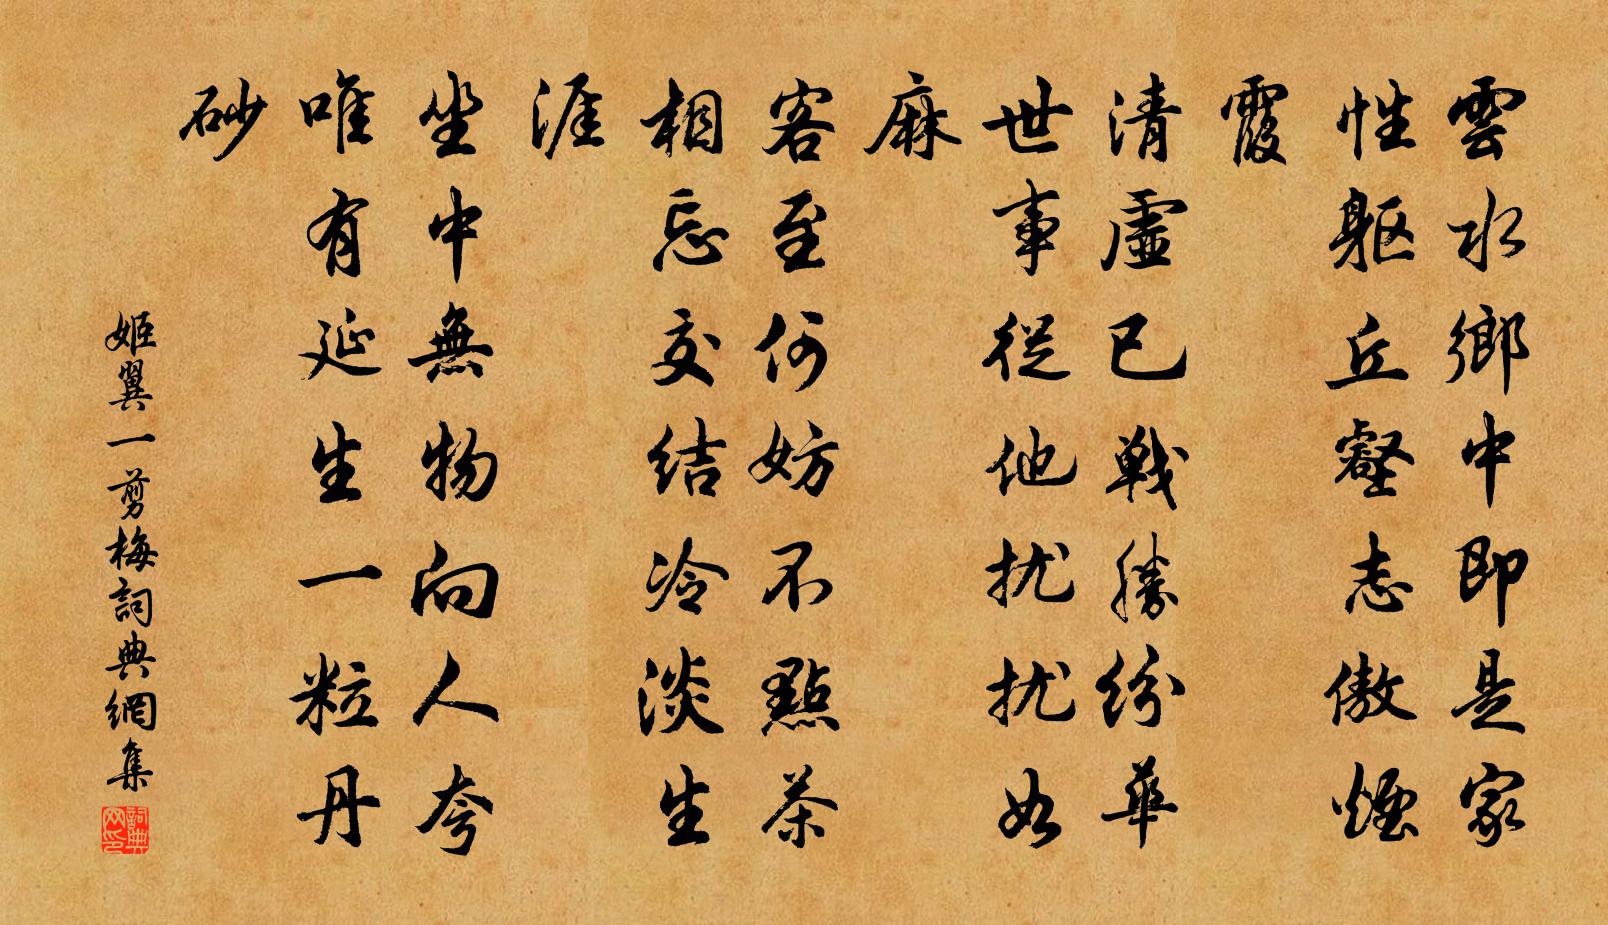 雲水鄉中即是家
性軀丘壑志傲煙
霞
清虛已戰勝紛華
世事從他扰扰如
麻
客至何妨不點茶
相忘交结冷淡生
涯
坐中無物向人夸
唯有延生一粒丹
砂
姬翼一剪梅詞典網集
詞典网印